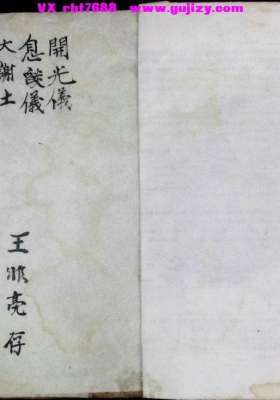 VX rbt7688 www.gujizy.com
開光儀
息譭儀
大謝土
王兆亮存